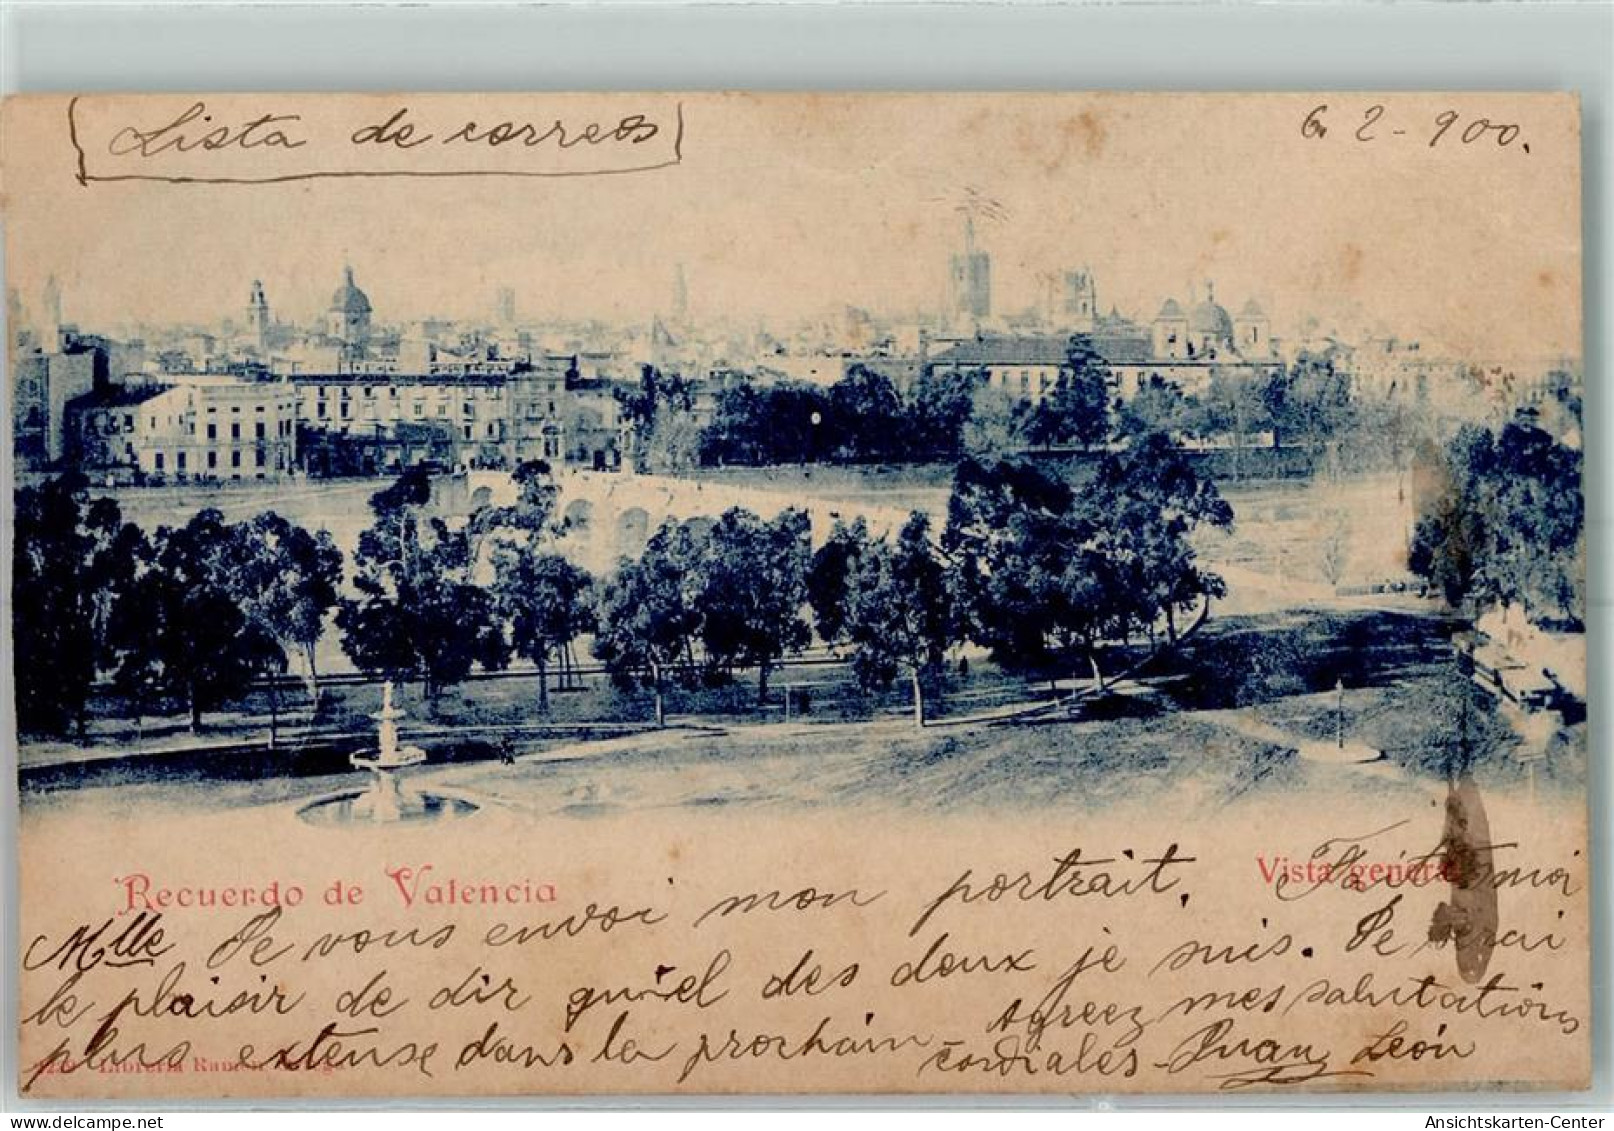 Lista de correos
6. 2 - 900.
Recuerdo de Valencia
Vista general
Mlle Je vous envoi mon portrait. Faites moi
le plaisir de dir quiel des deux je suis. Je serai
plus extense dans la prochain - Agreez mes salutations
cordiales - Juan León
Librería Ramón Ortega
Ansichtskarten-Center